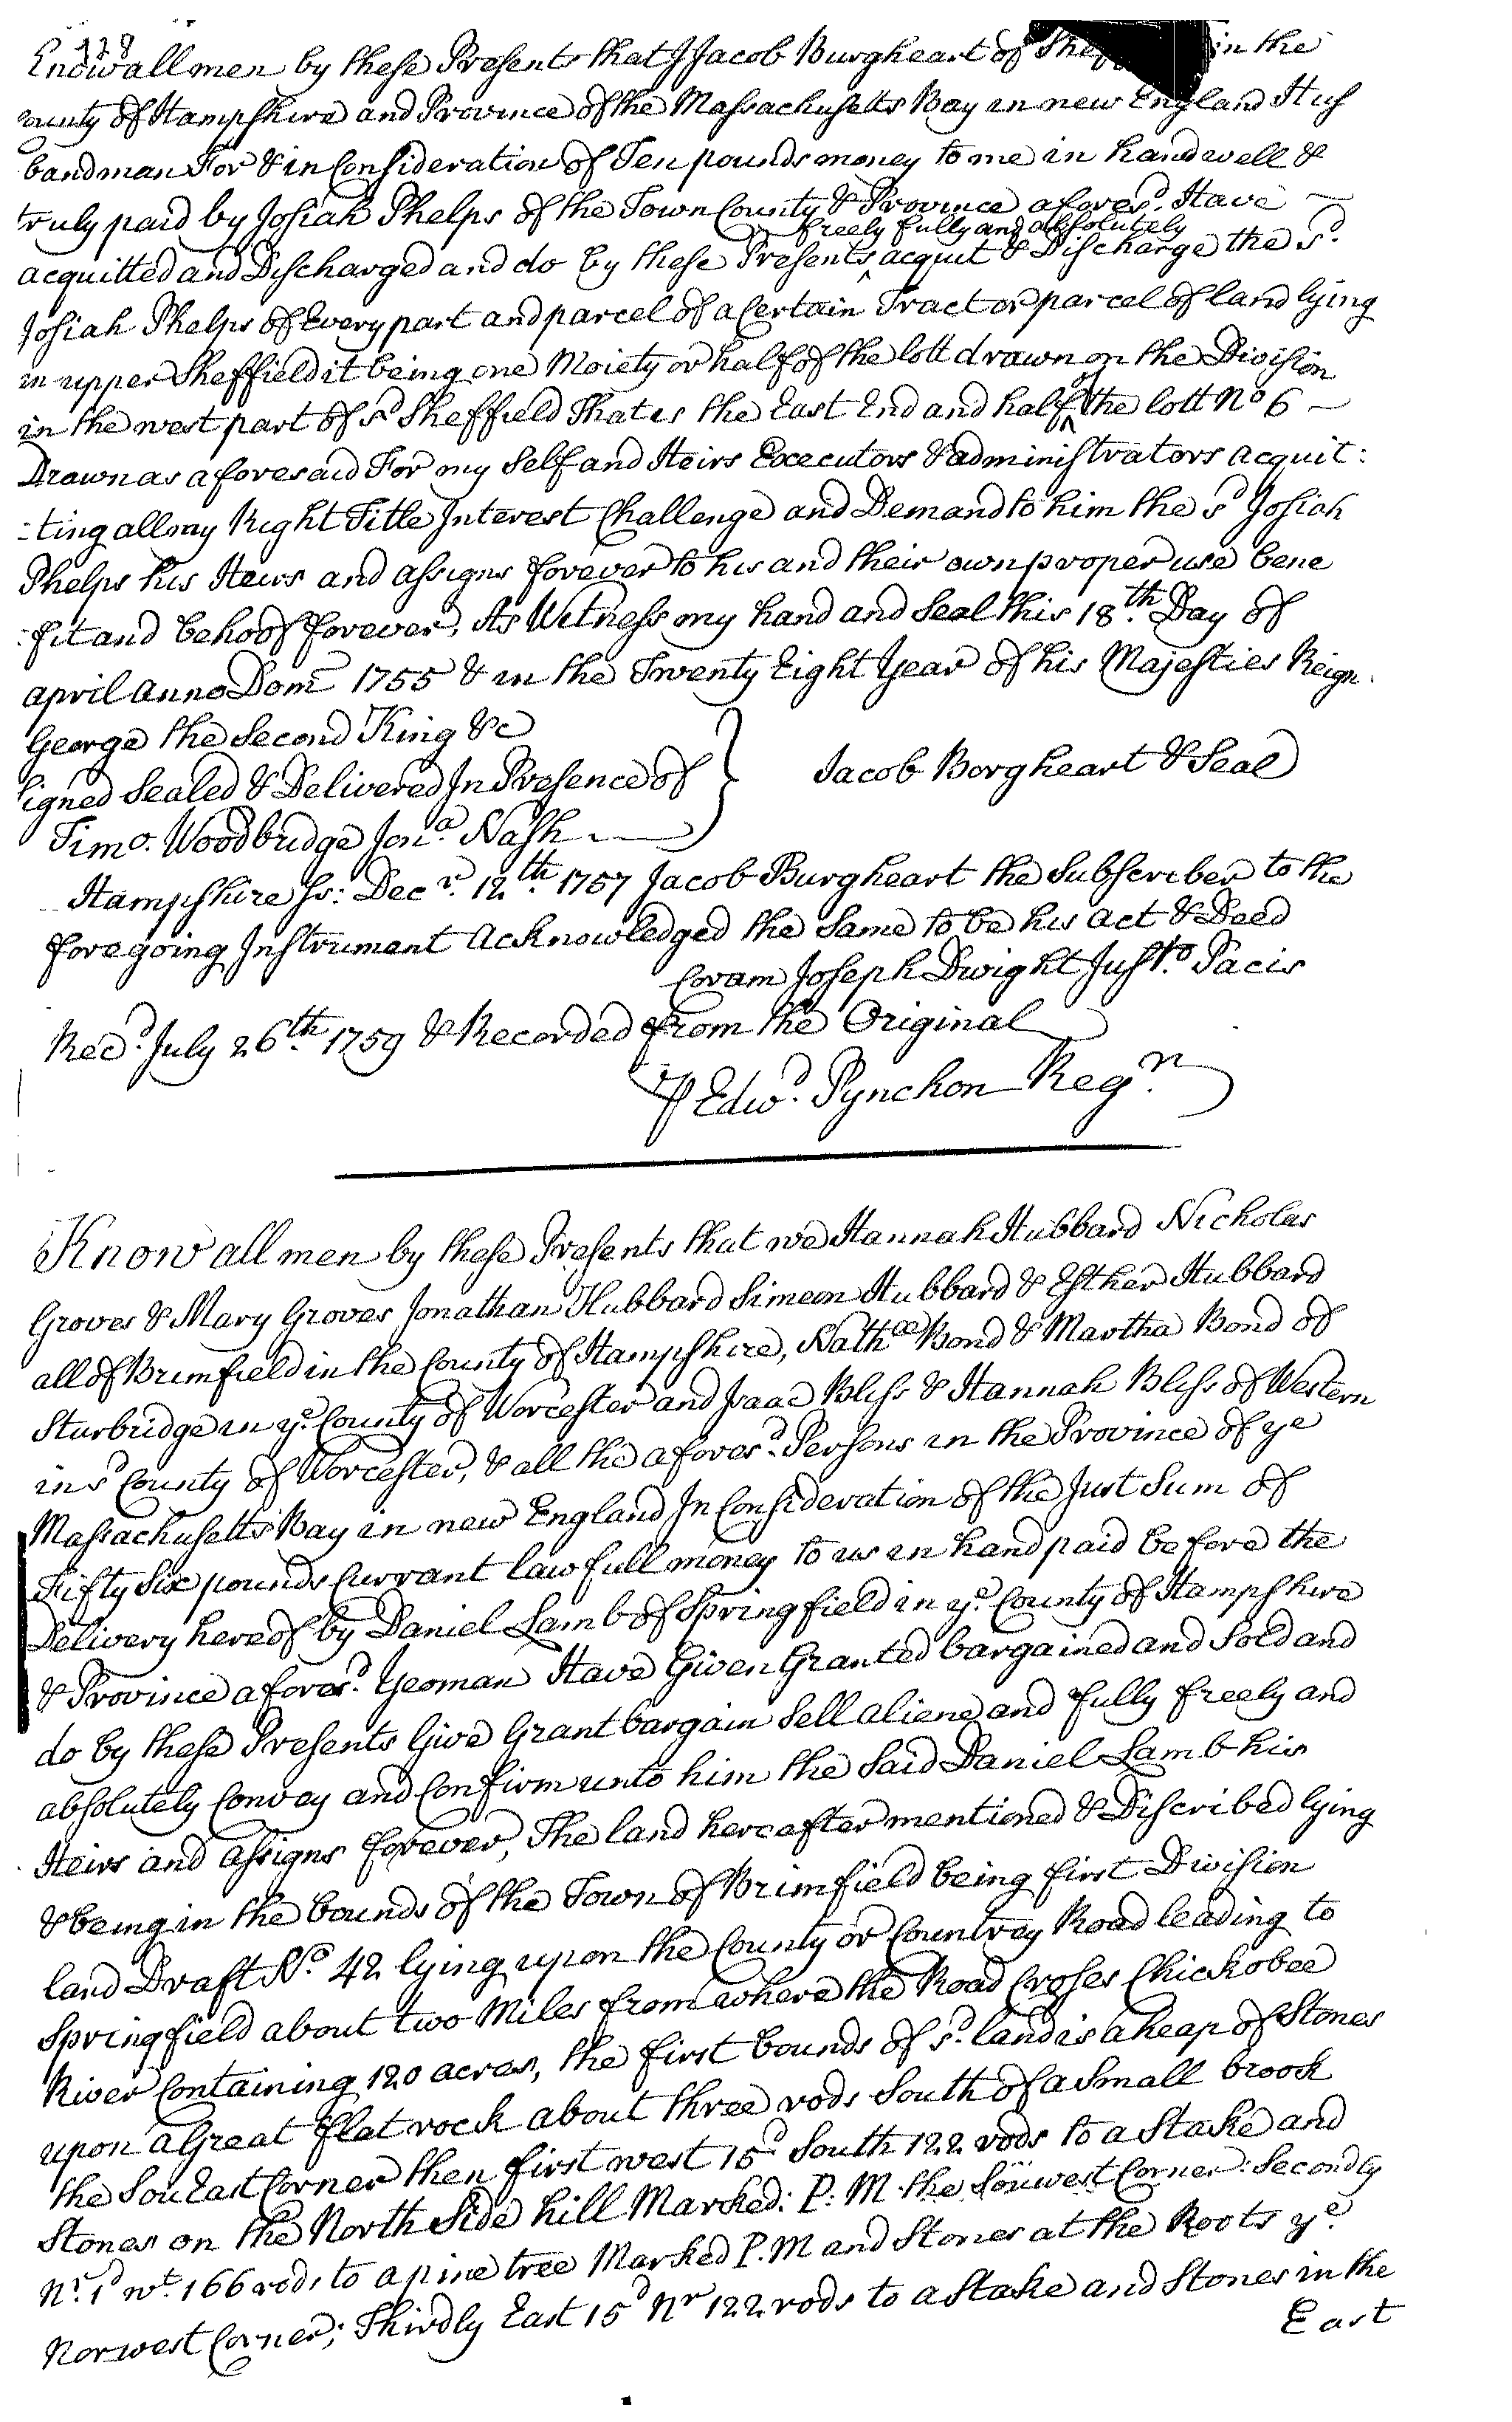 Know all men by these Presents that I Jacob Burgheart of in the
County of Hampshire and Province of the Massachusetts Bay in new England Hus
bandman For & in Consideration of Ten pounds money to me in hand well &
truly paid by Josiah Phelps of the Town County & Province afores.d Have
freely fully and absolutely
acquitted and Discharged and do by these Presents ‸ acquit & Discharge the s.d
Josiah Phelps of Every part and parcel of a Certain Tract or parcel of land lying
in upper Sheffield it being one Moiety or half of the lott drawn on the Division
in the west part of s.d Sheffield That is the East End and half of the lott No 6 —
Drawn as aforesaid For my Self and Heirs Executors & administrators acquit:
:ting all my Right Title Interest Challenge and Demand to him the s.d Josiah
Phelps his Heirs and assigns forever to his and their own proper use bene
:fit and behoof forever, As Witness my hand and Seal this 18.th Day of
april anno Dom 1755 & in the Twenty Eight Year of his Majesties Reign
George the Second King &c
Signed Sealed & Delivered In Presence of } Jacob Borgheart & Seal
Timo. Woodbridge Jon.a Nash
Hampshire Ss: Dec.r 12.th 1757 Jacob Burgheart the Subscriber to the
foregoing Instrument Acknowledged the Same to be his act & Deed
Coram Joseph Dwight Just.o Pacis
Rec.d July 26.th 1759 & Recorded from the Original
⅌ Edw.d Pynchon Reg.r
Know all men by these Presents that we Hannah Hubbard Nicholas
Groves & Mary Groves Jonathan Hubbard Simeon Hubbard & Esther Hubbard
all of Brimfield in the County of Hampshire, Nath.ll Bond & Martha Bond of
Sturbridge in y.e County of Worcester and Isaac Bliss & Hannah Bliss of Western
in s.d County of Worcester, & all the afores.d Persons in the Province of ye
Massachusetts Bay in new England In Consideration of the Just Sum of
Fifty Six pounds Currant lawfull money to us in hand paid before the
Delivery hereof by Daniel Lamb of Springfield in y.e County of Hampshire
& Province afores.d Yeoman Have Given Granted bargained and Sold and
do by these Presents Give Grant bargain Sell aliene and fully freely and
absolutely Convey and Confirm unto him the Said Daniel Lamb his
Heirs and assigns forever, The land hereafter mentioned & Discribed lying
& being in the bounds of the Town of Brimfield being first Division
land Draft N.o 42 lying upon the County or Countrey Road leading to
Springfield about two Miles from where the Road Croses Chickobee
River Containing 120 acres, the first bounds of s.d land is a heap of Stones
upon a Great flat rock about three rods South of a Small brook
the Sou East Corner then first west 15d South 122 rods to a Stake and
Stones on the North Side hill Marked: P: M the Souwest Corner: Secondly
N.r 1d w.t 166 rods to a pine tree Marked P. M and Stones at the Roots y.e
Norwest Corner; Thirdly East 15d Nr 122 rods to a Stake and Stones in the
East